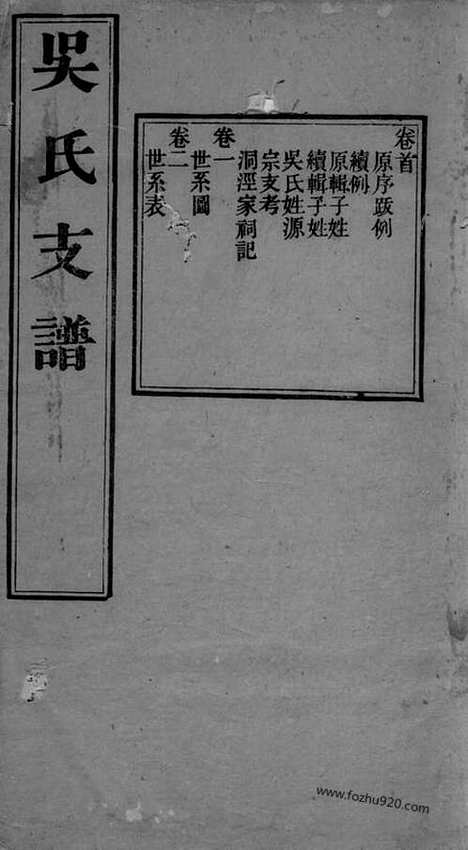 吳氏支譜
卷首
原序跋例
續例
原輯子姓
續輯子姓
吳氏姓源
宗支考
洞涇家祠記
卷一
世系圖
卷二
世系表
www.fozhu920.com